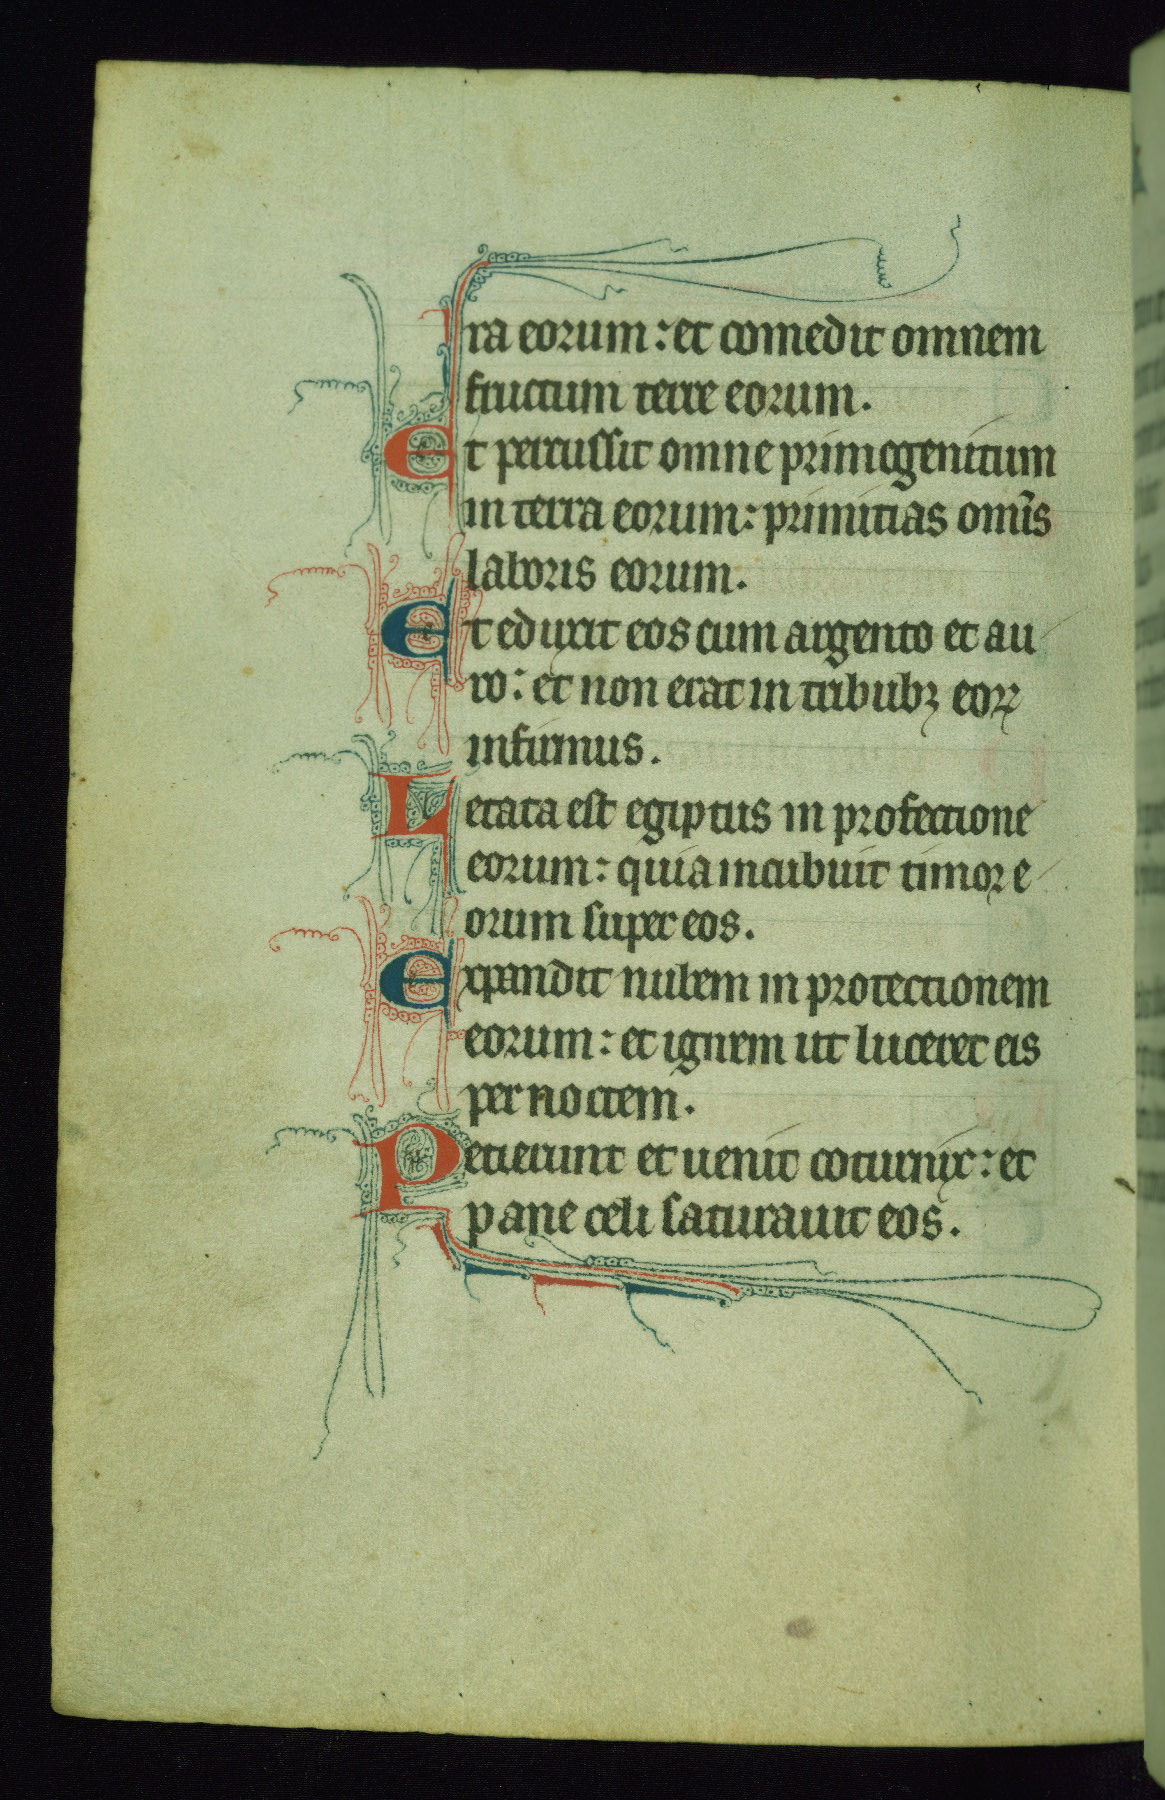 ra eorum : et comedit omnem
fructum terre eorum .
Et percussit omne primogenitum
in terra eorum : primitias omīs
laboris eorum .
Et eduxit eos cum argento et au
ro : et non erat in tribubꝫ eoꝝ
infirmus .
Letata est egiptus in profectione
eorum : quia incubuit timor e
orum super eos .
Expandit nubem in protectionem
eorum : et ignem ut luceret eis
per noctem .
Petierunt et uenit coturnix : et
pane celi saturauit eos .